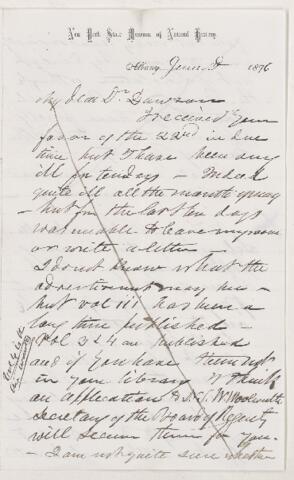 New York State Museum of Natural History,
Albany, June 3 1876
My dear Dr Dawson
I received your
favor of the 22nd in due
time but I have been any
ill for ten days – Indeed
quite ill all the month of May
– but for the last ten days
was unable to leave my room
or write a letter –
I do not know what the
advertisement may be –
but vol iii has been a
long time published –
Vol 3 & 4 are published
and if you have them not
in your library I think
an application to S. C. W. Woolworth
Secretary of the Board of Regents
will secure them for you –
– I am not quite sure whether